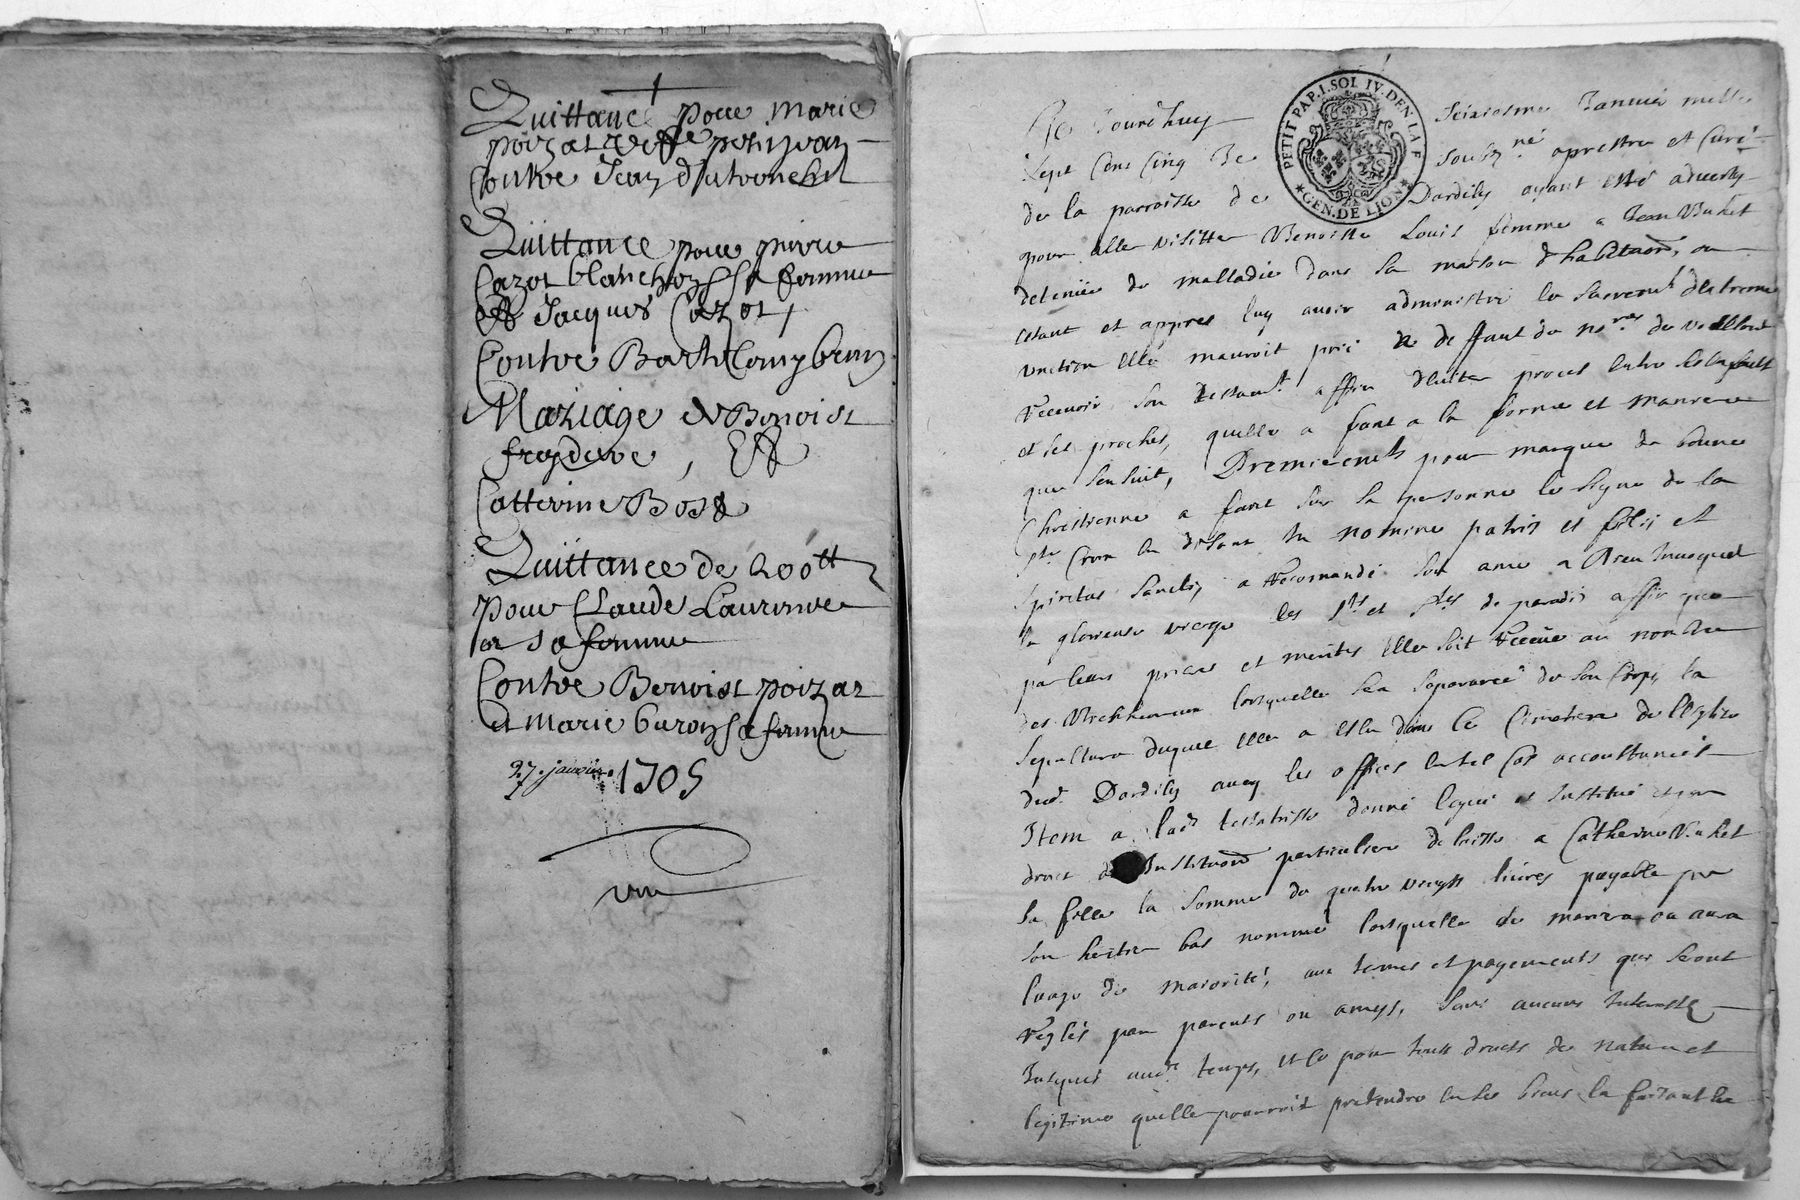 Quittance pour Marie
poizat veffe petitjean
Contre Jean
Quittance pour pierre
Cazot blanchon sa femme
et Jacques Cazot,
Contre Barthelemy brun
Mariage de Benoist
freydiere, Et
Catterine Bost
Quittance de 200tt
pour Claude Laurence
et sa femme
Contre Benoist poizat
et Marie buron sa femme
27. janvier 1705
PETIT PAP. 1. SOL IV. DEN. LA F.
GEN. DE LION
Ce Jourdhuy seiziesme Januier mille
sept Cens Cinq Je soubzné prestre et Curé
de la parroisse de Dardilly ayant esté aduerty
pour aller visitter Benoitte Louis femme a Jean Buhet
detenüe de malladie dans sa maison dhabitaon, ou
estant et appres luy auoir administré le sacremt dextreme
vnction elle mauroit prié a deffaut de nores de voulloir
receuoir son testamt affin deuiter proces entre ses enfants
et ses proches, quelle a fait a la forme et maniere
que sensuit, Premierement pour marque de bonne
Chrestienne a fait sur sa personne le signe de la
ste Croix en disant In nomine patris et filij et
spiritus sancti, a recomandé son ame a Dieu Inuoquet
la glorieuse vierge les sts et stes de paradis affin que
par leurs prieres et merites elle soit receue au nombre
des bienheureux lorsquelle sera separareé de son Corps, la
sepulture duquel elle a esleu dans le Cimetiere de leglise
dud. Dardilly auec les offices en tel Cas accoustumés
Item a lad testatrisse donné legué et Institué et par
droit d Institution particuliere delaisse a Catherine Buhet
sa fille la somme de quatre vingt liures payable par
son heritier bas nommé lorsquelle se mariera ou aura
laage de maiorité, aux termes et payements qui seront
reglés par parents ou amys, sans aucuns Interests
Jusques aud. temps, et ce pour tous droits de nature et
legitime quelle pourroit pretendre en ses biens la faisant en